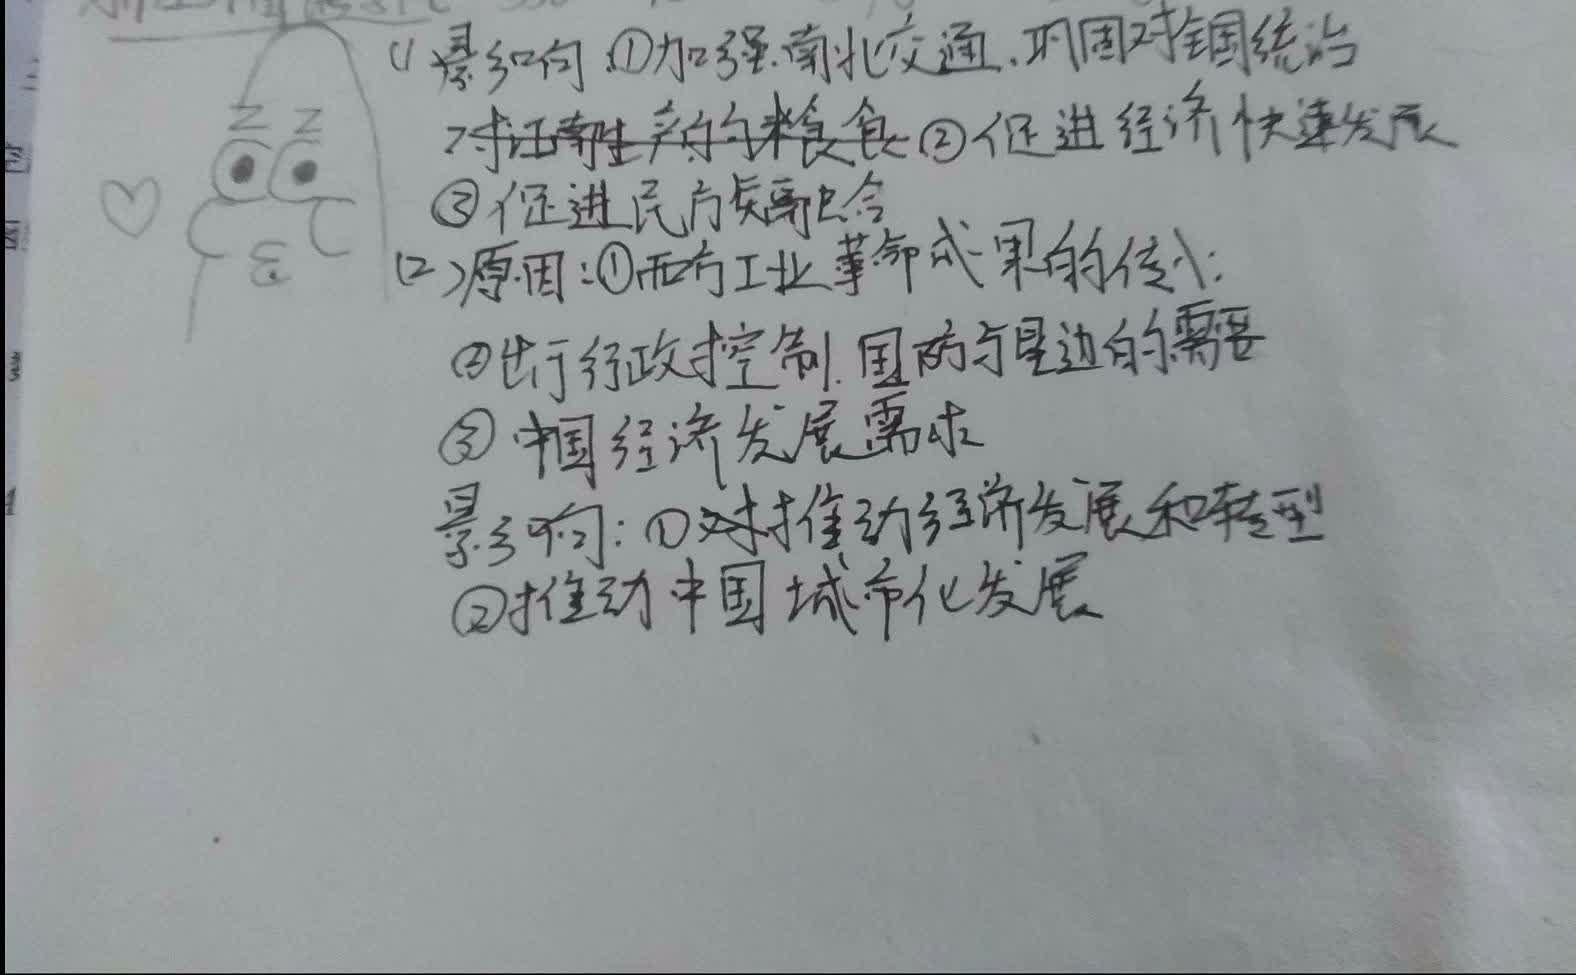 (1)影响:①加强南北交通、巩固对全国统治
对江南生产的粮食 ②促进经济快速发展
③促进民族融合
(2)原因:①西方工业革命成果的传入:
②出于行政控制.国防与垦边的需要
③中国经济发展需求
影响:①对推动经济发展和转型
②推动中国城市化发展